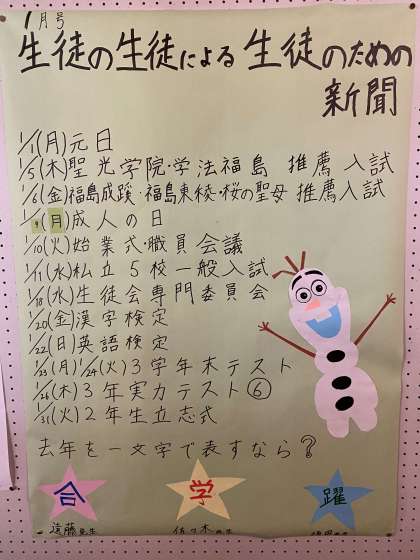 1月号
生徒の生徒による生徒のための
新聞
1/1(月)元日
1/5(木)聖光学院・学法福島 推薦入試
1/6(金)福島成蹊・福島東稜・桜の聖母 推薦入試
1/9(月)成人の日
1/10(火)始業式・職員会議
1/11(水)私立5校一般入試
1/18(水)生徒会専門委員会
1/20(金)漢字検定
1/22(日)英語検定
1/23(月)1/24(火)3学年末テスト
1/26(木)3年実力テスト⑥
1/31(火)2年生立志式
去年を一文字で表すなら?
合 学 躍
遠藤先生 佐々木先生